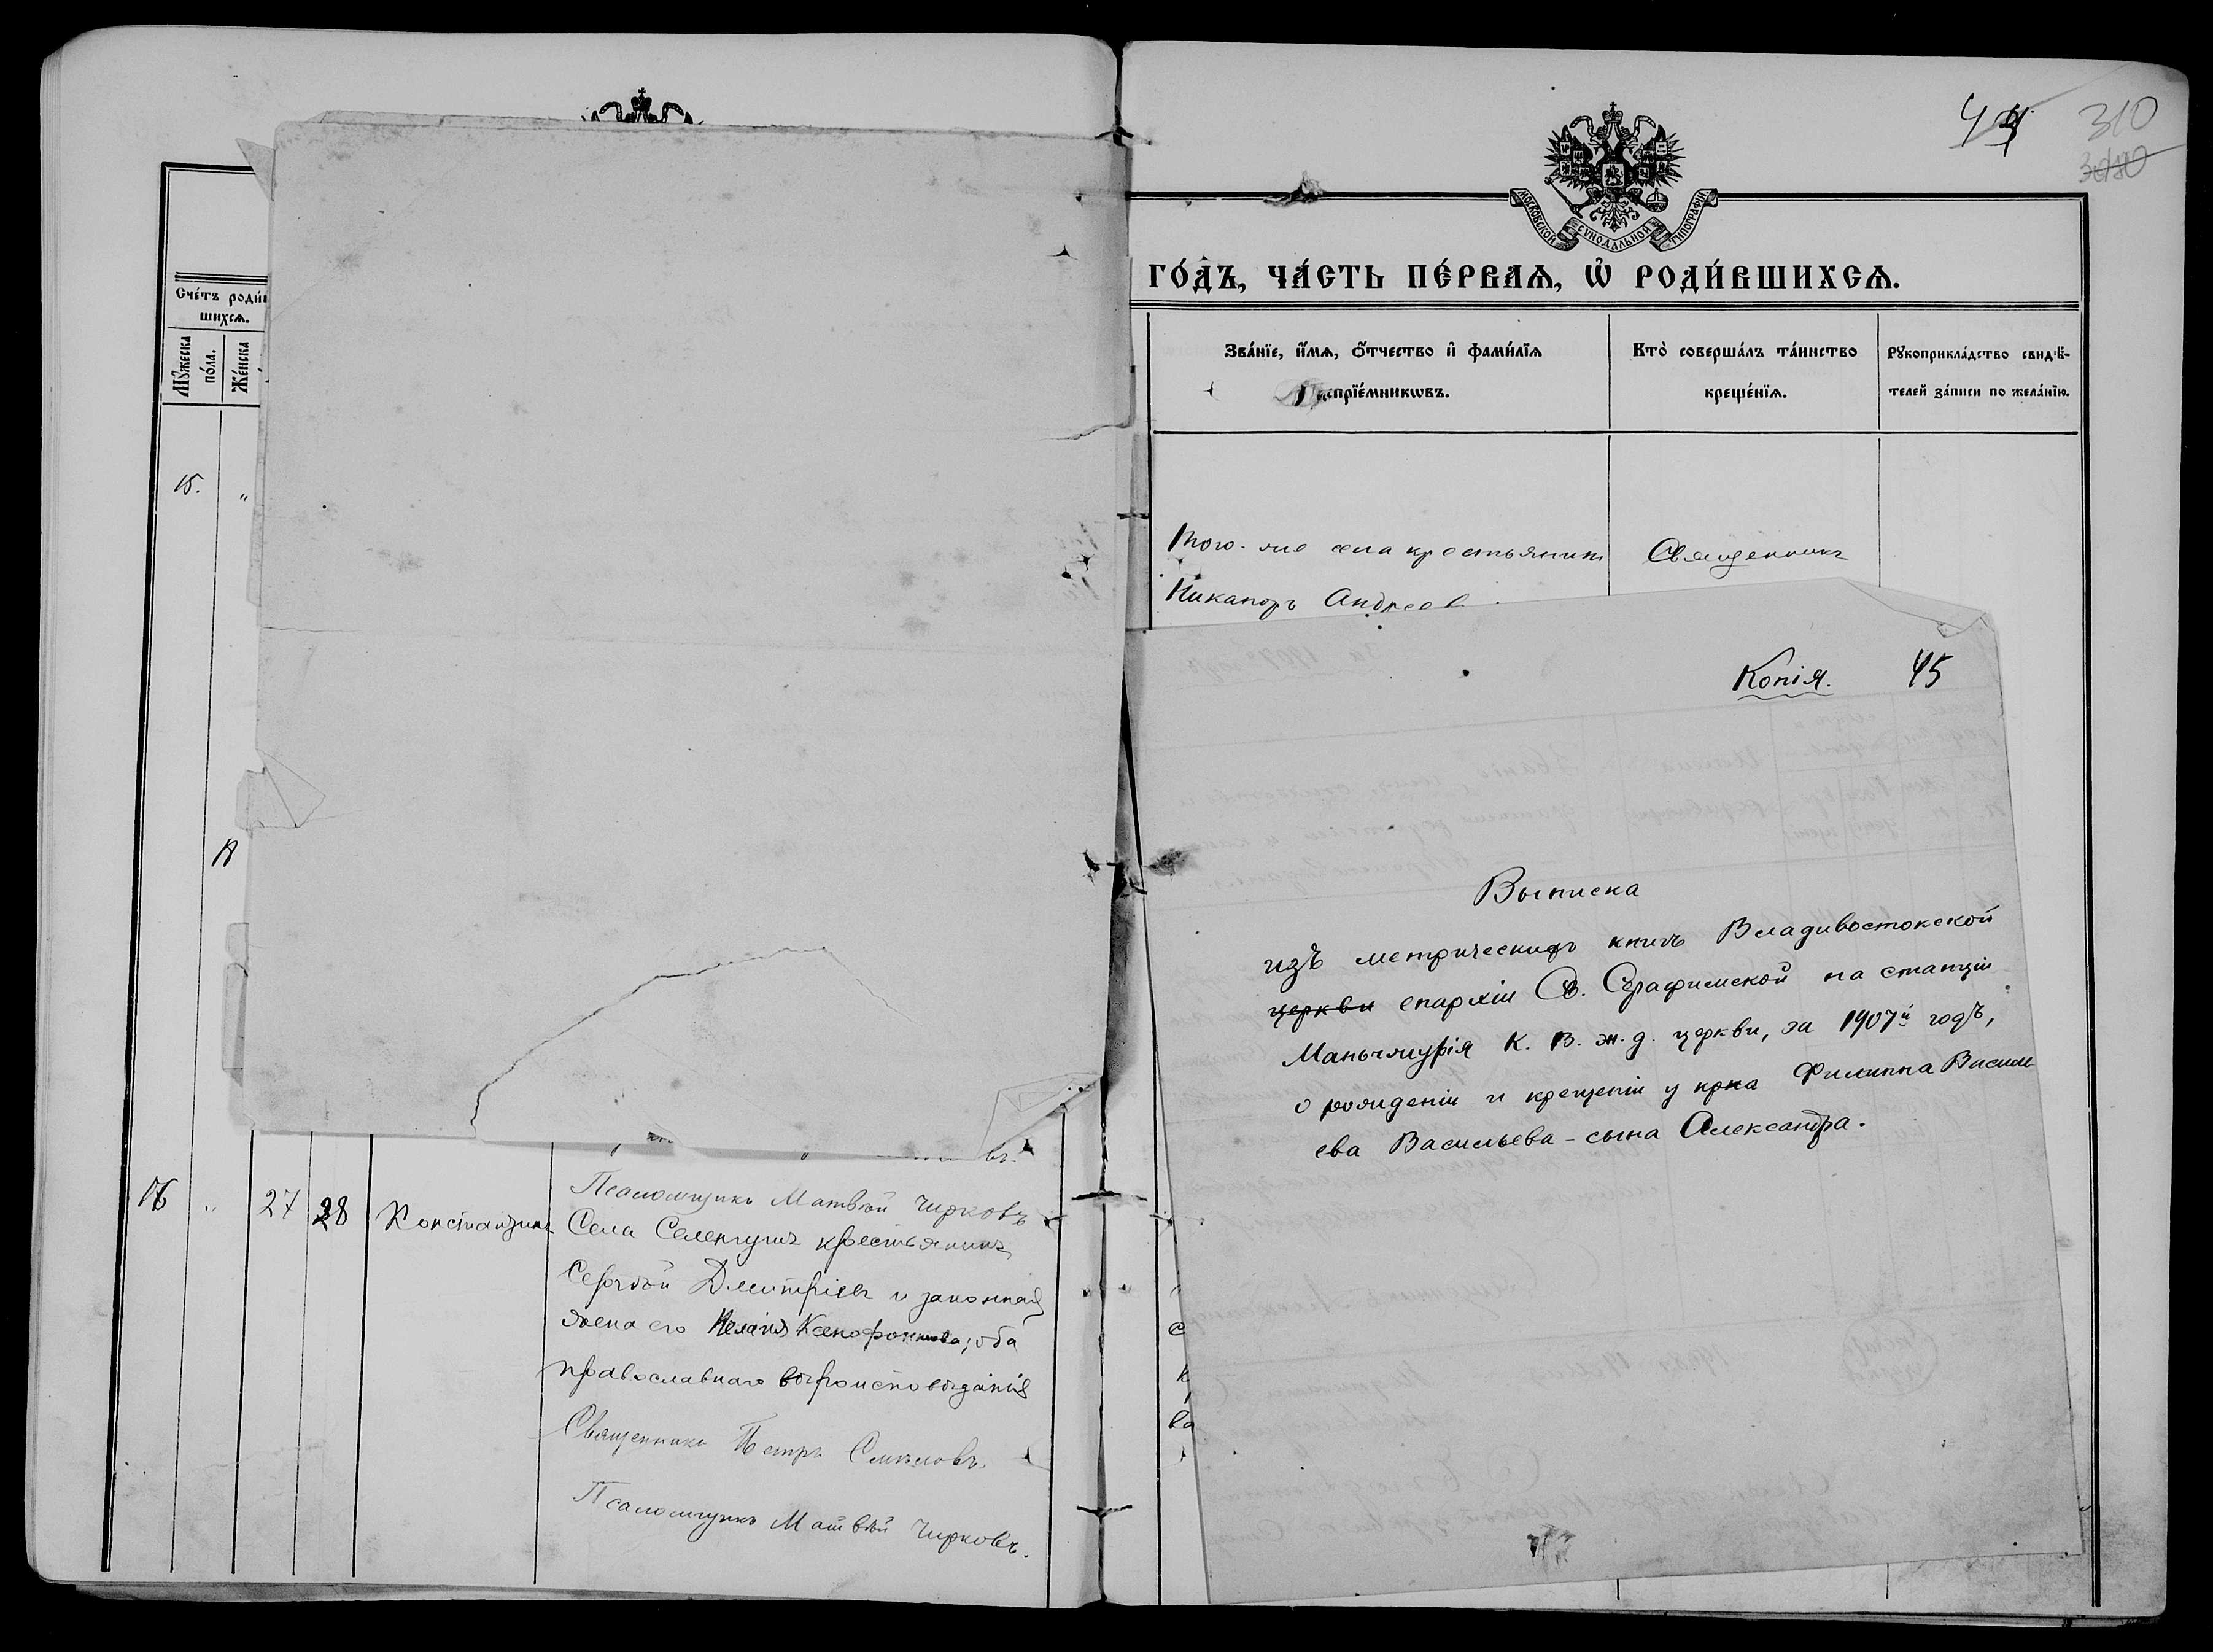 Сче́тъ роди́в
шихсѧ.
Мꙋжеска
по́ла.
Же́нска
15.
"
16 " 27 28 Константинъ
Псаломщикъ Матвѣй Чирковъ
Села Селенгушъ крестьянинъ
Сергѣй Дмитріевъ и законная
жена его Пелагія Ксенофонтова; оба
православнаго вѣроисповѣданія
Священникъ Петръ
Псаломщикъ Матвѣй Чирковъ.
44 310
МОСКОВСКОЙ СѴНОДАЛЬНОЙ ТИПОГРАФІИ
ГО́ДЪ, ЧА́СТЬ ПЕ́РВАѦ, Ѡ҆ РОДИ́ВШИХСѦ.
Зва́нїе, и҆́мѧ, ѻ҆́тчество и҆ фами́лїѧ
воспрїе́мникѡвъ.
Кто̀ соверша́лъ та́инство
креще́нїѧ.
Рꙋкоприкла́дство свидѣ́-
телей за́писи по жела́нїю.
Того-же села крестьянинъ
Священникъ
Никаноръ Андреев
Копія. 45
Выписка
изъ метрическихъ книгъ Владивостокской
церкви епархіи Св. Серафимской на станціи
Маньчжурія К. В. ж. д. церкви, за 1907й годъ,
о рожденіи и крещеніи у крна Филиппа Василь
ева Васильева - сына Александра.